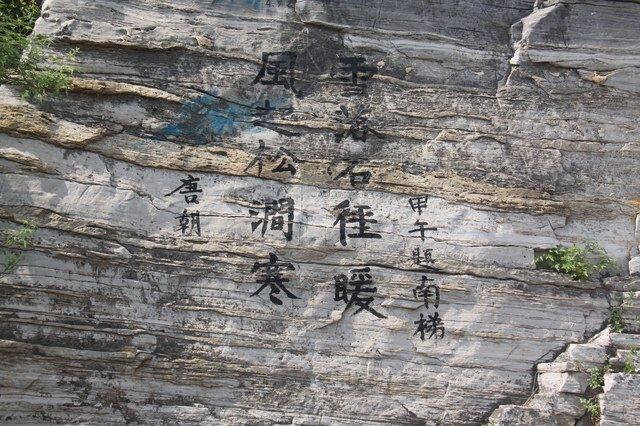 甲午題南梯
雪落石徑暖
風之松澗寒
唐朝